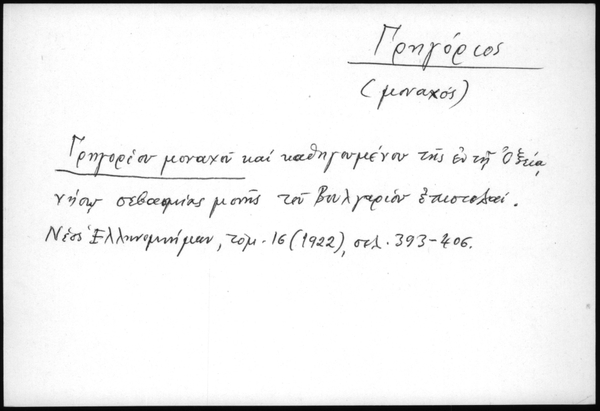 Γρηγόριος
(μοναχός)
Γρηγορίου μοναχοῦ καί καθηγουμένου τῆς ἐν τῇ Ὀξείᾳ
νήσῳ σεβασμίας μονῆς τοῦ Βουλγαρίου ἐπιστολαί.
Νέος Ἑλληνομνήμων, τόμ. 16 (1922), σελ. 393-406.